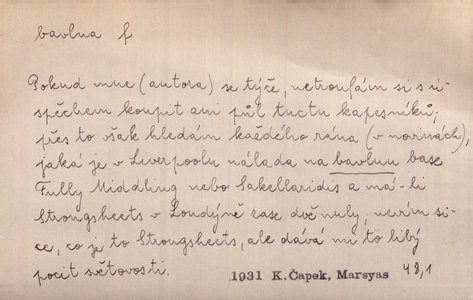 bavlna f
Pokud mne (autora) se týče, netroufám si s ú-
spěchem koupit ani půl tuctu kapesníků;
přes to však hledám každého rána (v novinách),
jaká je v Liverpoolu nálada na bavlnu base
Fully Middling nebo Sakellaridis a má-li
Strongsheets v Londýně zase dvě nuly; nevím si-
ce, co je to Strongsheets, ale dává mi to libý
pocit světovosti.
1931 K.Čapek, Marsyas 48,1